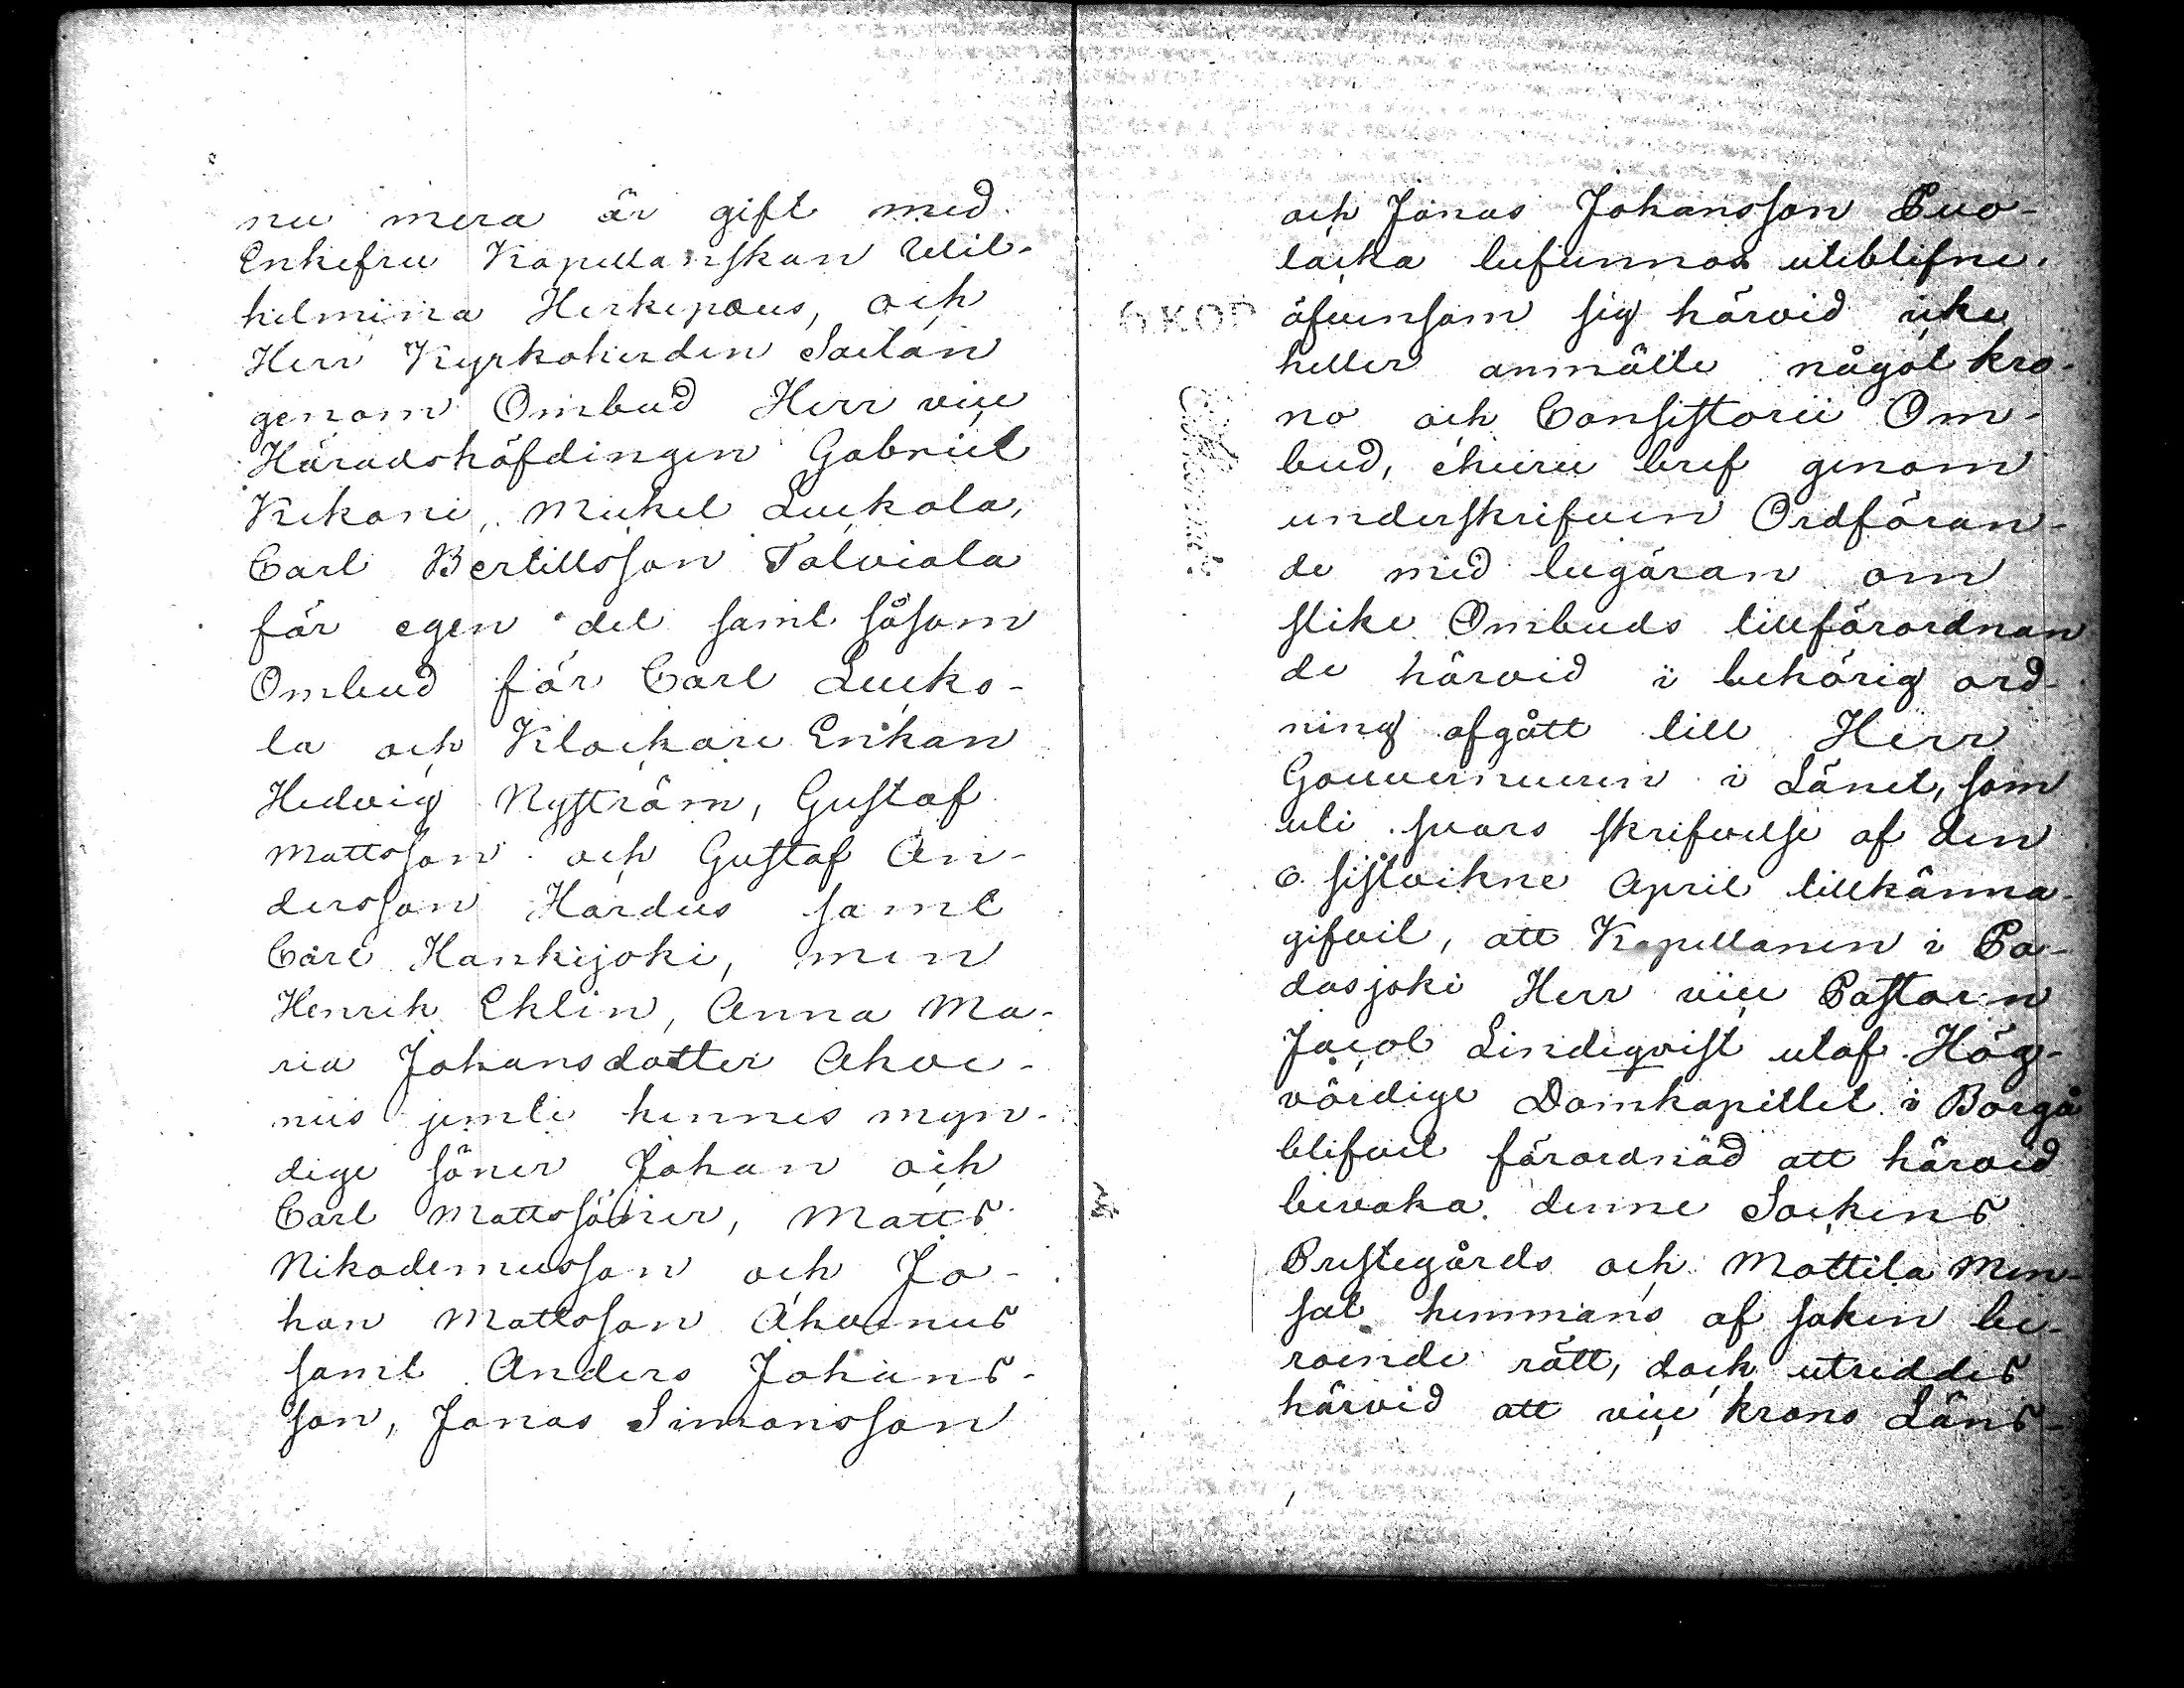 nu mera är gift med
Enkefru Kapellanskan Wil-
helmina Herkepæus, och
Herr Kyrkoherden Sadan
genom Ombud Herr vice
Häradshöfdingen Gabriel
Kekoni, Mickel Luckola,
Carl Bertillsson Talviala
för egen del samt såsom
Ombud för Carl Lucko-
la och Klockare Enkan
Hedvig Nyström, Gustaf
Mattsson och Gustaf An-
dersson Hardus samt
Carl Hankijoki, men
Henrik Eklin, Anna Ma-
ria Johansdotter Ahve-
nus jemte hennes myn-
dige söner Johan och
Carl Mattssöner, Matts
Nikodemusson och Jo-
han Mattsson Ahvenus
samt Anders Johans-
son, Jonas Simonsson
och Jonas Johansson Puo-
lacka befunnos uteblifne,
äfvensom sig härvid icke
heller anmälte något kro-
no och Consistorii Om-
bud, ehuru bref genom
underskrifven Ordföran-
de med begäran om
slike Ombuds tillförordnan
de härvid i behörig ord-
ning afgått till Herr
Gouverneuren i Länet, som
uti svars skrifvelse af den
6. sistvikne April tillkänna-
gifvit, att Kapellanen i Pa-
dasjoki Herr vice Pastorn
Jacob Lindeqvist utaf Hög-
vördige Domkapitlet i Borgå
blifvit förordnad att härvid
bevaka denne Sockens
Prestegårds och Mattila Men-
sal hemmans af saken be-
roende rätt, dock utreddes
härvid att vice krono Läns-